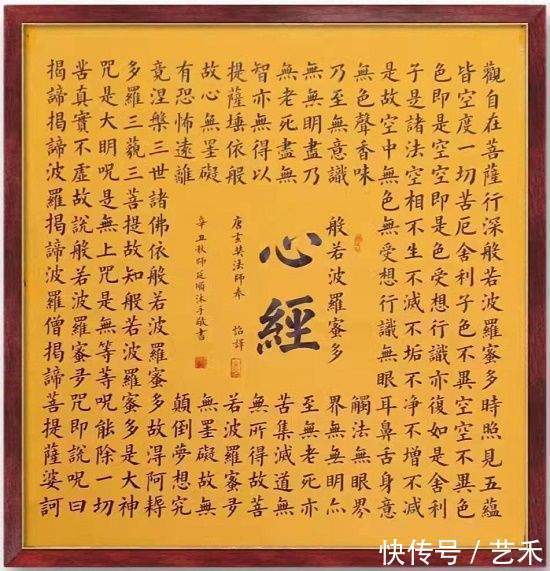 觀自在菩薩行深般若波羅蜜多時照見五蘊
皆空度一切苦厄舍利子色不異空空不異色
色即是空空即是色受想行識亦復如是舍利
子是諸法空相不生不滅不垢不淨不增不減
是故空中無色無受想行識無眼耳鼻舌身意
無色聲香味
觸法無眼界
乃至無意識
界無無明亦
無無明盡乃
至無老死亦
無老死盡無
苦集滅道無
智亦無得以
無所得故菩
提薩埵依般
若波羅蜜多
故心無罣礙
無罣礙故無
有恐怖遠離
顛倒夢想究
竟涅槃三世諸佛依般若波羅蜜多故得阿耨
多羅三藐三菩提故知般若波羅蜜多是大神
咒是大明咒是無上咒是無等等咒能除一切
苦真實不虛故說般若波羅蜜多咒即說咒曰
揭諦揭諦波羅揭諦波羅僧揭諦菩提薩婆訶
般若波羅蜜多
心經
唐玄奘法師奉 詔譯
辛丑秋師延順沐手敬書
快传号/艺禾